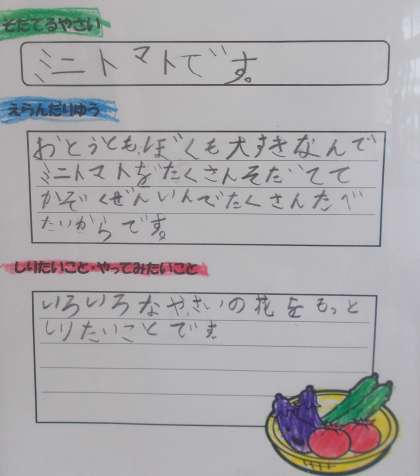 そだてるやさい
ミニトマトです。
えらんだりゆう
おとうともぼくも大すきなんで
ミニトマトをたくさんそだてて
かぞくぜんいんでたくさんたべ
たいからです。
しりたいこと・やってみたいこと
いろいろなやさいの花をもっと
しりたいことです